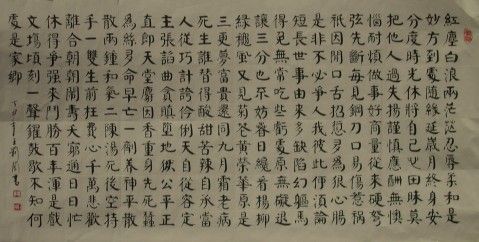 紅塵白浪兩茫茫忍辱柔和是
妙方到處隨緣延歲月終身安
分度時光休將自己心田昧莫
把他人過失揚謹慎應酬無懊
惱耐煩做事好商量從來硬弩
弦先斷每見鋼刀口易傷惹禍
祇因閒口舌招愆多為狠心腸
是非不必爭人我彼此何須論
短長世事由來多缺陷幻軀焉
得免無常吃些虧處原無礙退
讓三分也不妨春日纔看楊柳
綠秋風又見菊花黃榮華原是
三更夢富貴還同九月霜老病
死生誰替得酸甜苦辣自承當
人從巧計誇伶俐天自從容定
主張諂曲貪瞋墮地獄公平正
直即天堂麝因香重身先死蠶
為絲多命早亡一劑養神平胃
散兩鍾和氣二陳湯死後空持
手一雙生前枉費心千萬悲歡
離合朝朝鬧壽夭窮通日日忙
休得爭強來鬥勝百年渾是戲
文場頃刻一聲鑼鼓歇不知何
處是家鄉